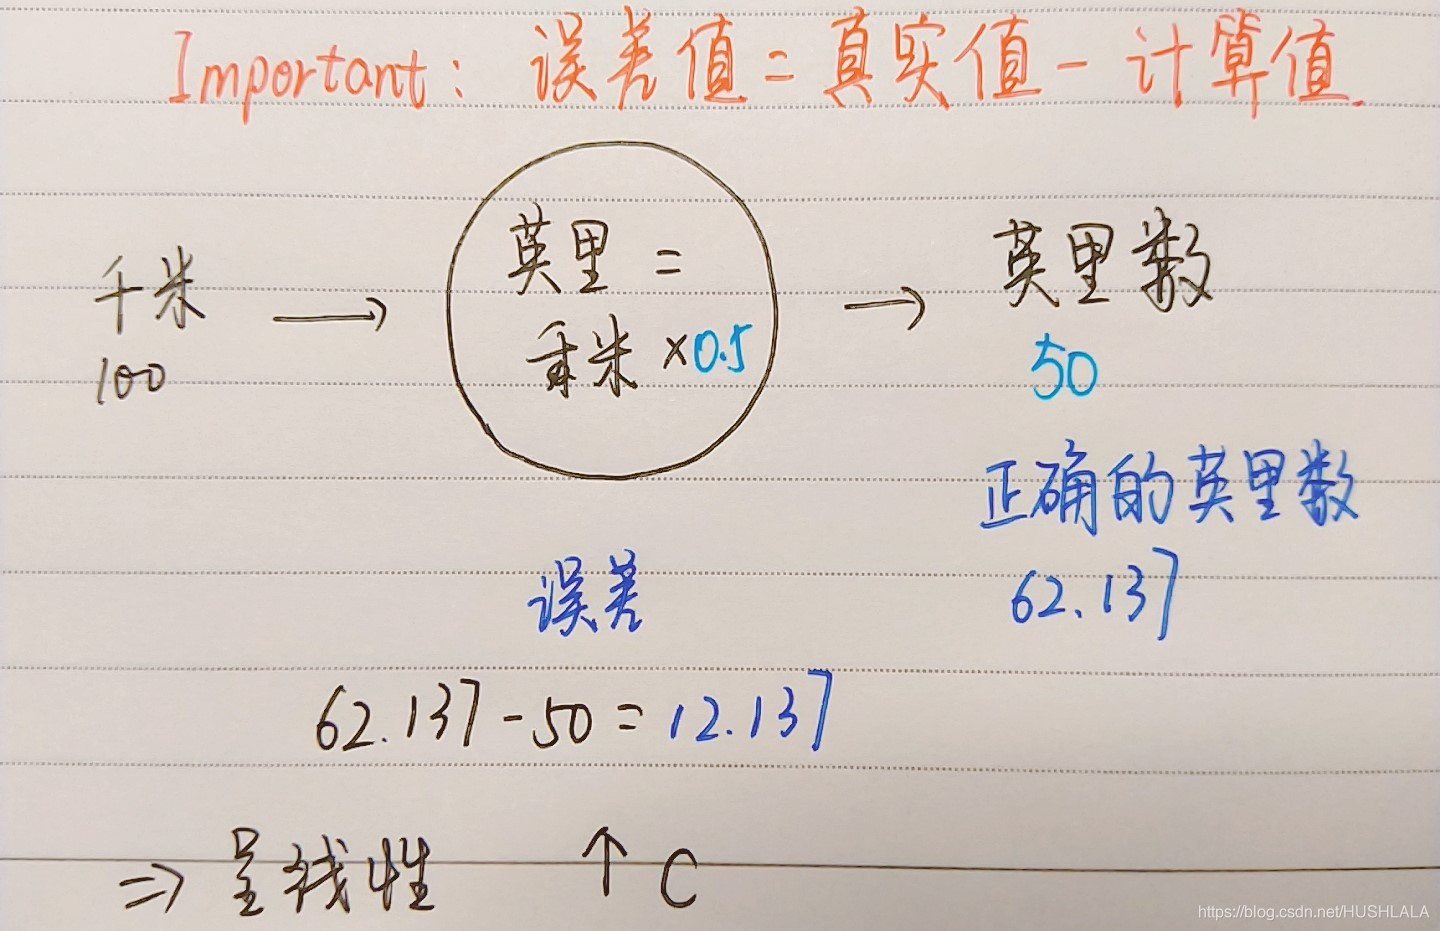 Important: 误差值 = 真实值 - 计算值.
千米
100
→
英里 =
千米 × 0.5
→
英里数
50
正确的英里数
62.137
误差
62.137 - 50 = 12.137
⇒ 呈线性 ↑ C
https://blog.csdn.net/HUSHLALA